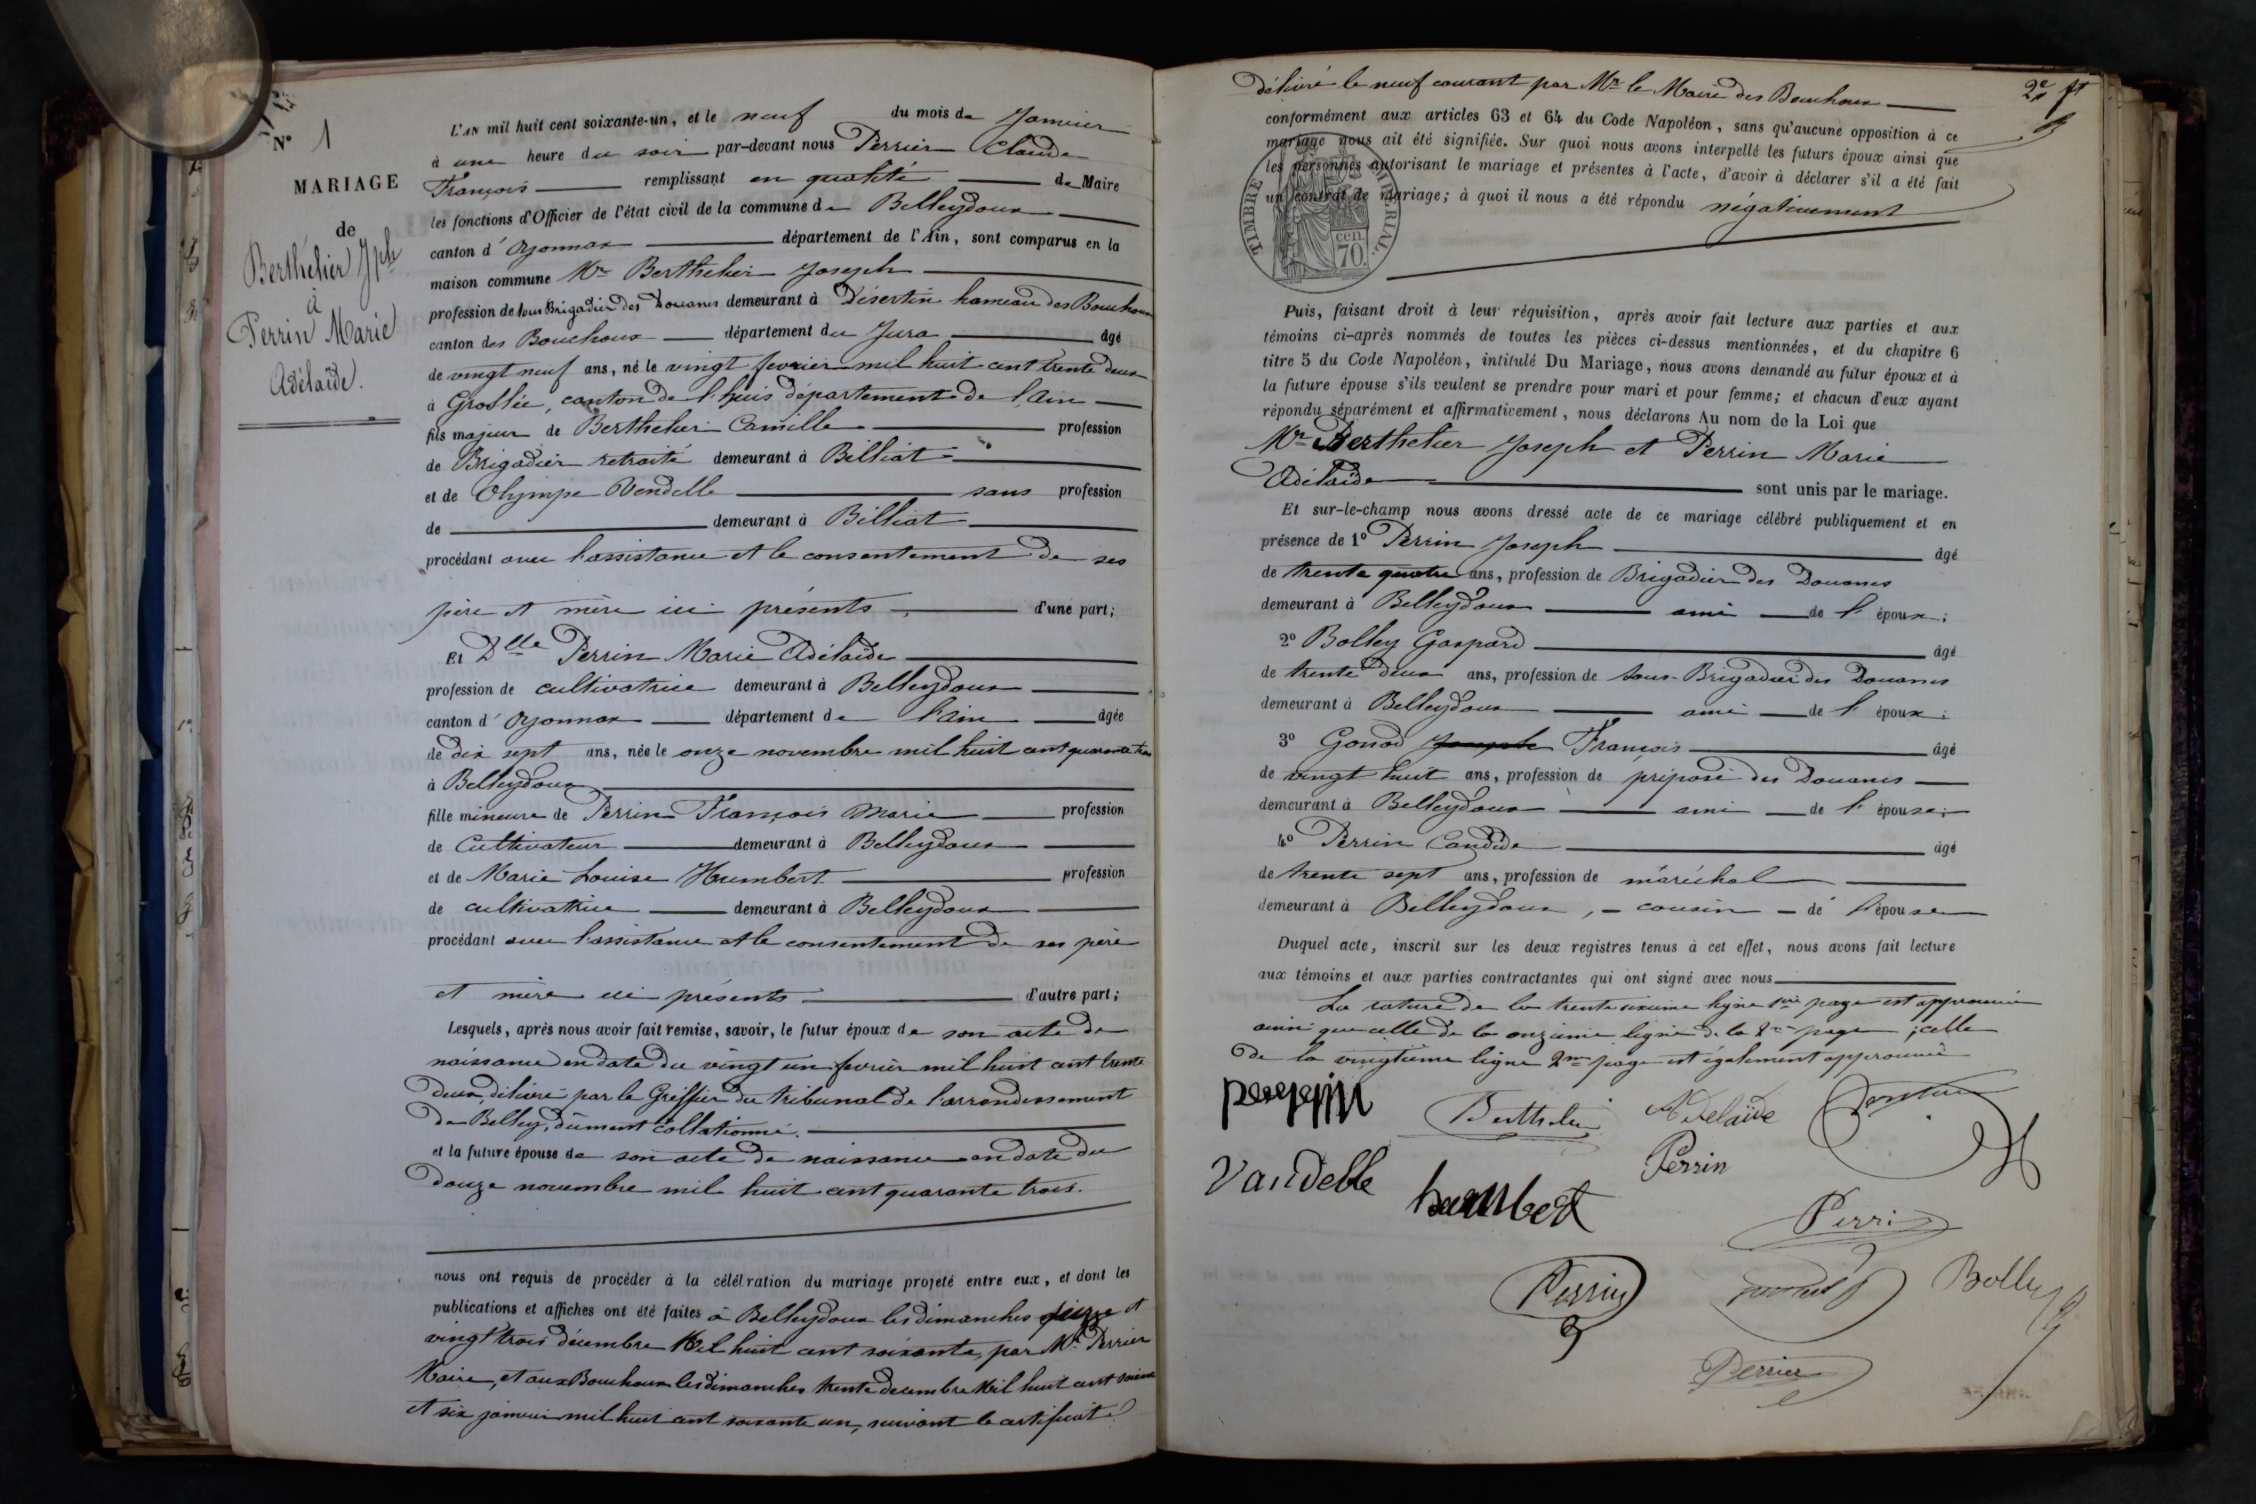 N° 1
MARIAGE
de
Berthélier Jph
à
Perrin Marie
Adélaïde.
L'AN mil huit cent soixante-un, et le neuf du mois de Janvier
à une heure du soir par-devant nous Perrier Claude
François remplissant en qualité de Maire
les fonctions d'Officier de l'état civil de la commune de Belleydoux
canton d'Oyonnax département de l'Ain, sont comparus en la
maison commune Mr Berthelier Joseph
profession de sous Brigadier des Douanes demeurant à Désertin hameau des Bouchoux
canton des Bouchoux département du Jura âgé
de vingt neuf ans, né le vingt fevrier mil huit cent trente deux
à Groslée, canton de l'huis département de l'ain
fils majeur de Berthelier Camille profession
de Brigadier retraité demeurant à Billiat
et de Olympe Vendelle sans profession
de demeurant à Billiat
procédant avec l'assistance et le consentement de ses
père et mère ici présents d'une part;
Et Dlle Perrin Marie Adélaïde
profession de cultivatrice demeurant à Belleydoux
canton d'Oyonnax département de l'Ain âgée
de dix sept ans, née le onze novembre mil huit cent quarante trois
à Belleydoux
fille mineure de Perrin François Marie profession
de Cultivateur demeurant à Belleydoux
et de Marie Louise Humbert profession
de cultivatrice demeurant à Belleydoux
procédant avec l'assistance et le consentement de ses père
et mère ici présents d'autre part;
Lesquels, après nous avoir fait remise, savoir, le futur époux de son acte de
naissance en date du vingt un fevrier mil huit cent trente
deux, délivré par le Greffier du tribunal de l'arrondissement
de Belley, dûment collationné.
et la future épouse de son acte de naissance en date du
douze novembre mil huit cent quarante trois.
nous ont requis de procéder à la célébration du mariage projeté entre eux, et dont les
publications et affiches ont été faites à Belleydoux les dimanches seize et
vingt trois décembre Mil huit cent soixante, par Mr Perrier
Maire, et aux Bouchoux les dimanches trente decembre Mil huit cent soixante
et six janvier mil huit cent soixante un, suivant le certificat
2e ft
délivré le neuf courant par Mr le Maire des Bouchoux
conformément aux articles 63 et 64 du Code Napoléon, sans qu'aucune opposition à ce
mariage nous ait été signifiée. Sur quoi nous avons interpellé les futurs époux ainsi que
les personnes autorisant le mariage et présentes à l'acte, d'avoir à déclarer s'il a été fait
un contrat de mariage; à quoi il nous a été répondu négativement
TIMBRE IMPERIAL.
cen.
70.
Puis, faisant droit à leur réquisition, après avoir fait lecture aux parties et aux
témoins ci-après nommés de toutes les pièces ci-dessus mentionnées, et du chapitre 6
titre 5 du Code Napoléon, intitulé Du Mariage, nous avons demandé au futur époux et à
la future épouse s'ils veulent se prendre pour mari et pour femme; et chacun d'eux ayant
répondu séparément et affirmativement, nous déclarons Au nom de la Loi que
Mr Berthelier Joseph et Perrin Marie
Adélaïde sont unis par le mariage.
Et sur-le-champ nous avons dressé acte de ce mariage célébré publiquement et en
présence de 1° Perrin Joseph âgé
de trente quatre ans, profession de Brigadier des Douanes
demeurant à Belleydoux ami de l'époux;
2° Bolley Gaspard âgé
de trente deux ans, profession de sous-Brigadier des Douanes
demeurant à Belleydoux ami de l'époux;
3° Gonod Joseph François âgé
de vingt huit ans, profession de préposé des Douanes
demeurant à Belleydoux ami de l'épouse;
4° Perrin Candide âgé
de trente sept ans, profession de maréchal
demeurant à Belleydoux, cousin de l'épouse
Duquel acte, inscrit sur les deux registres tenus à cet effet, nous avons fait lecture
aux témoins et aux parties contractantes qui ont signé avec nous
La rature de la trente sixième ligne 1ère page est approuvée
ainsi que celle de la onzième ligne de la 2me page ; celle
de la vingtième ligne 2me page est également approuvée
Berthelier
Adelaïde
Perrin
Vandelle
humbert
Perrin
Perrin
Bolley
Perrier